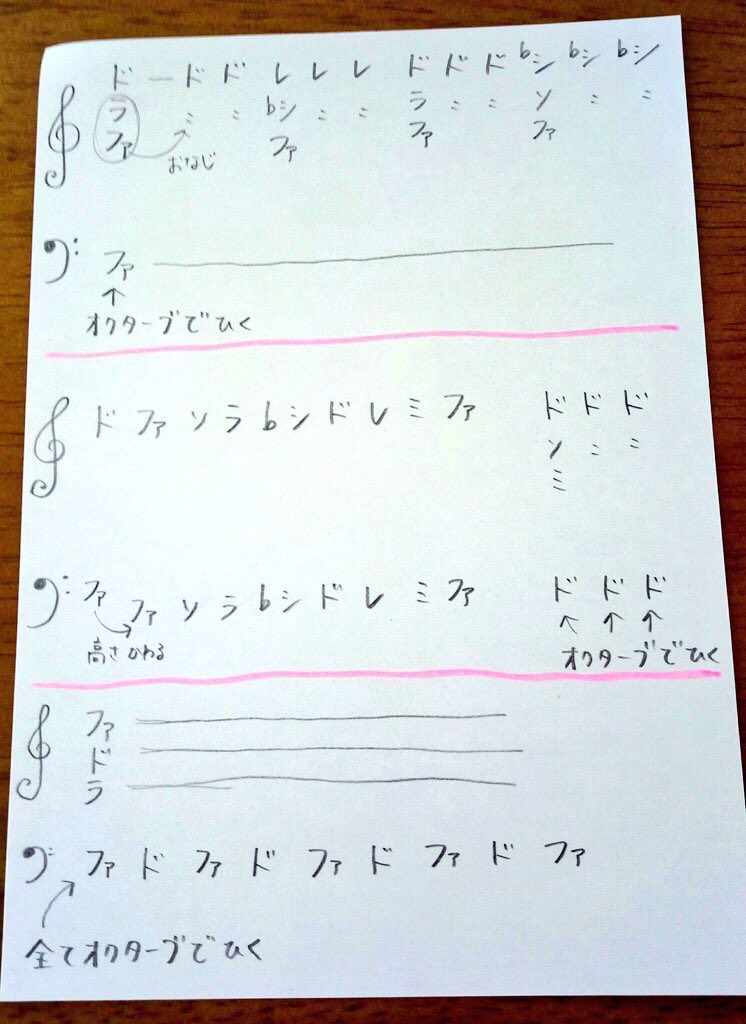 ド ー ド ド レ レ レ ド ド ド ♭シ ♭シ ♭シ
ラ 〃 〃 ♭シ 〃 〃 ラ 〃 〃 ソ 〃 〃
ファ ファ ファ ファ
おなじ
ファ
オクターブでひく
ド ファ ソ ラ ♭シ ド レ ミ ファ ド ド ド
ソ 〃 〃
ミ
ファ ファ ソ ラ ♭シ ド レ ミ ファ ド ド ド
高さかわる オクターブでひく
ファ
ド
ラ
ファ ド ファ ド ファ ド ファ ド ファ
全てオクターブでひく